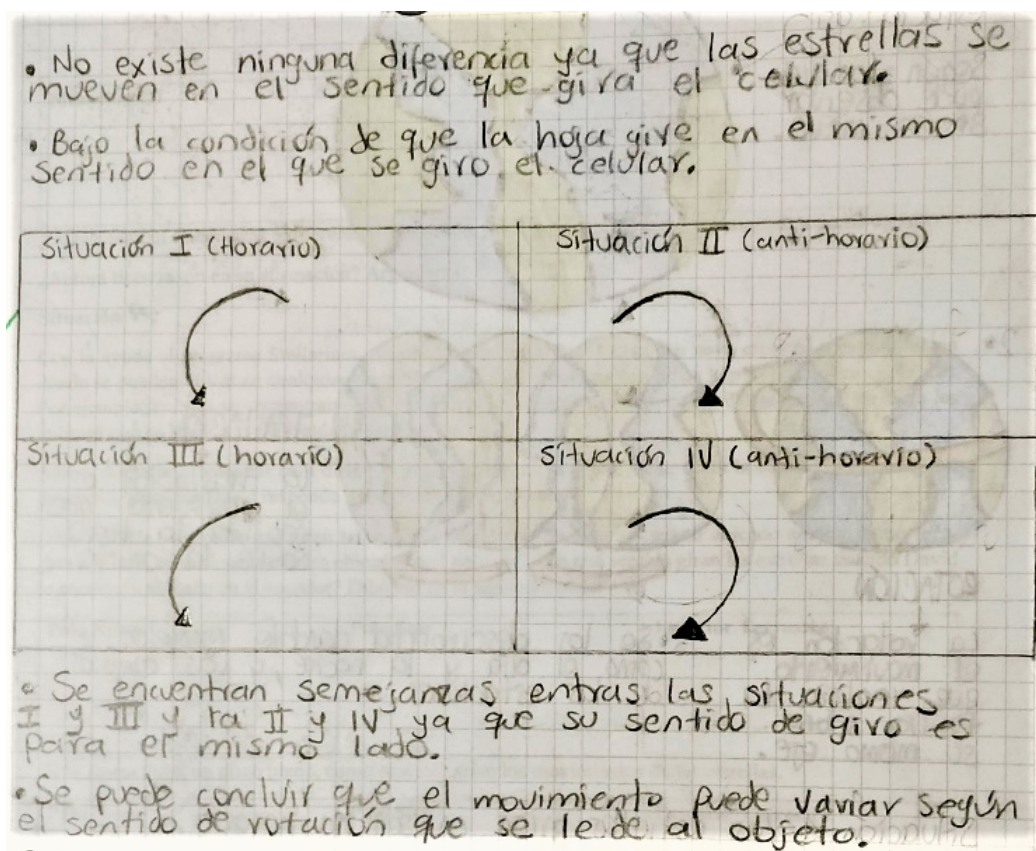 • No existe ninguna diferencia ya que las estrellas se
mueven en el sentido que gira el celular.
• Bajo la condición de que la hoja gire en el mismo
sentido en el que se giro el celular.
Situación I (Horario)
Situación II (anti-horario)
Situación III (horario)
Situación IV (anti-horario)
• Se encuentran semejanzas entras las situaciones
I y III y ra II y IV ya que su sentido de giro es
para el mismo lado.
• Se puede concluir que el movimiento puede variar según
el sentido de rotación que se le de al objeto.